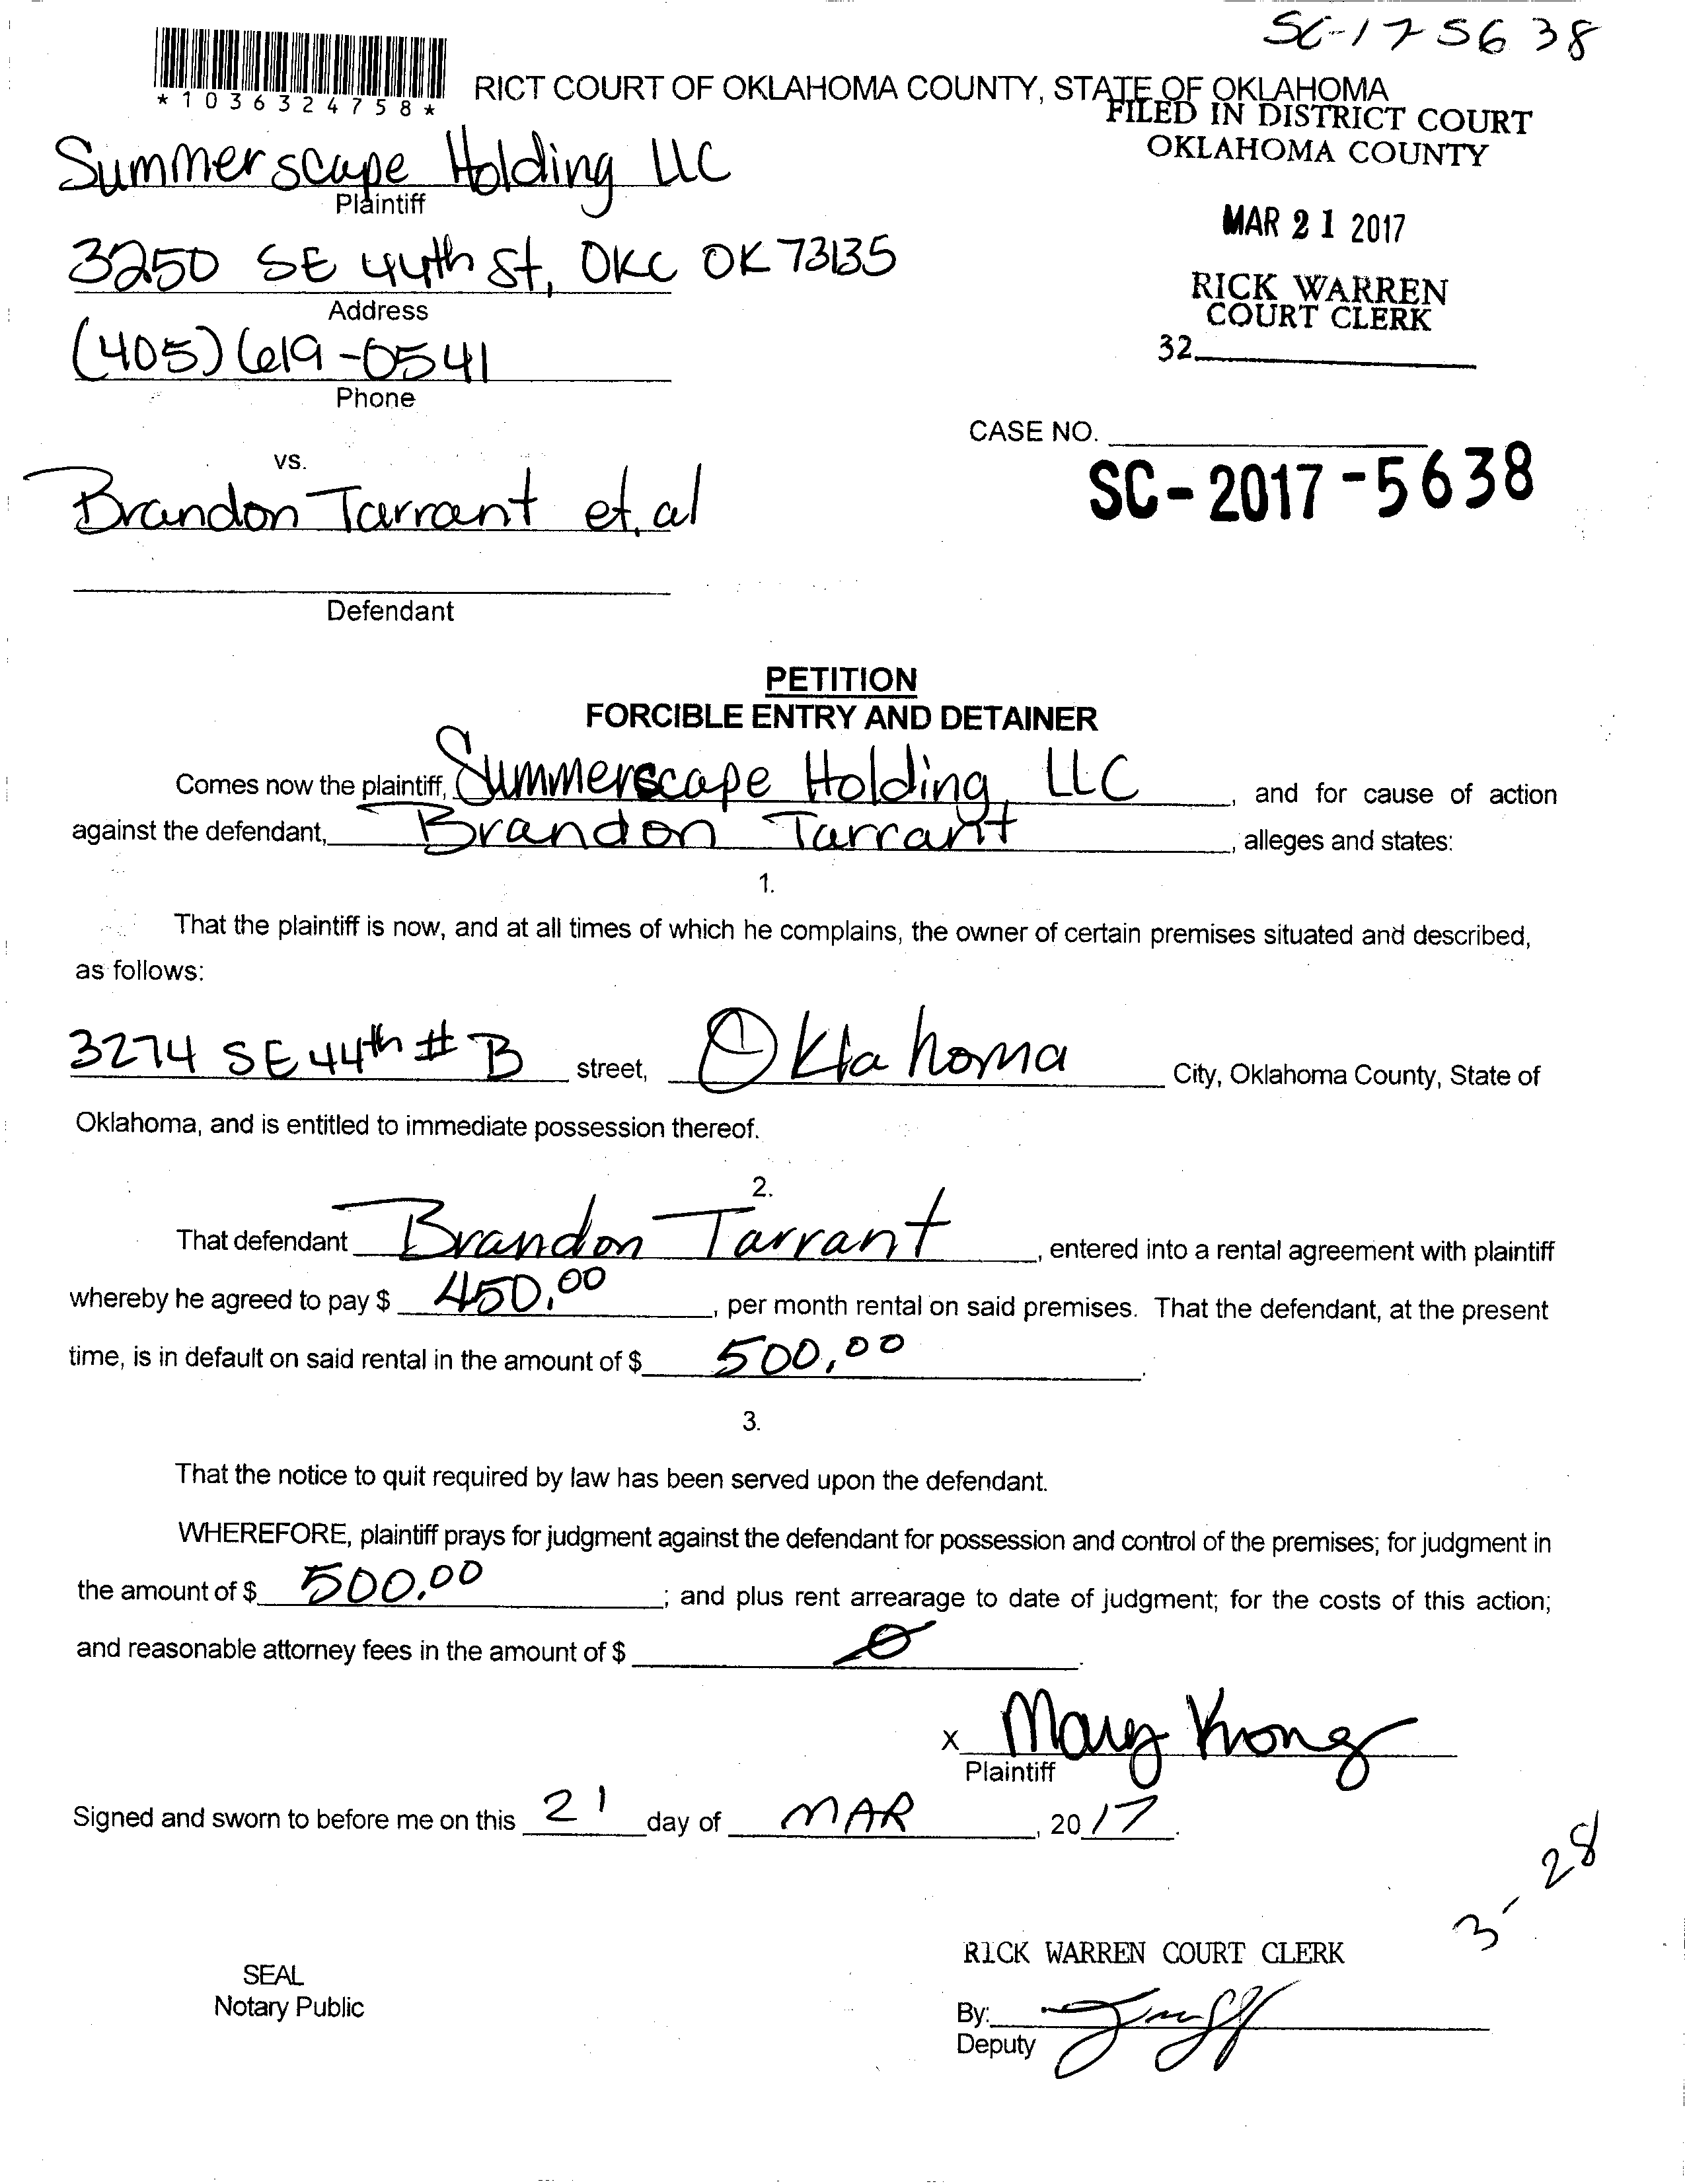 SC-17 5638
*1036324758*
RICT COURT OF OKLAHOMA COUNTY, STATE OF OKLAHOMA
FILED IN DISTRICT COURT
OKLAHOMA COUNTY
Summerscape Holding LLC
Plaintiff
MAR 21 2017
3250 SE 44th St, OKC OK 73135
Address
RICK WARREN
COURT CLERK
(405) 619-0541
32
Phone
CASE NO.
SC-2017-5638
vs.
Brandon Tarrant et.al
Defendant
PETITION
FORCIBLE ENTRY AND DETAINER
Comes now the plaintiff, Summerscape Holding, LLC, and for cause of action
against the defendant, Brandon Tarrant, alleges and states:
1.
That the plaintiff is now, and at all times of which he complains, the owner of certain premises situated and described,
as follows:
3274 SE 44th # B street, Oklahoma City, Oklahoma County, State of
Oklahoma, and is entitled to immediate possession thereof.
2.
That defendant Brandon Tarrant, entered into a rental agreement with plaintiff
whereby he agreed to pay $ 450.00, per month rental on said premises. That the defendant, at the present
time, is in default on said rental in the amount of $ 500.00.
3.
That the notice to quit required by law has been served upon the defendant.
WHEREFORE, plaintiff prays for judgment against the defendant for possession and control of the premises; for judgment in
the amount of $ 500.00; and plus rent arrearage to date of judgment; for the costs of this action;
and reasonable attorney fees in the amount of $ 0.
X Mary
Plaintiff
Signed and sworn to before me on this 21 day of MAR, 2017.
3-28
RICK WARREN COURT CLERK
SEAL
Notary Public
By:
Deputy